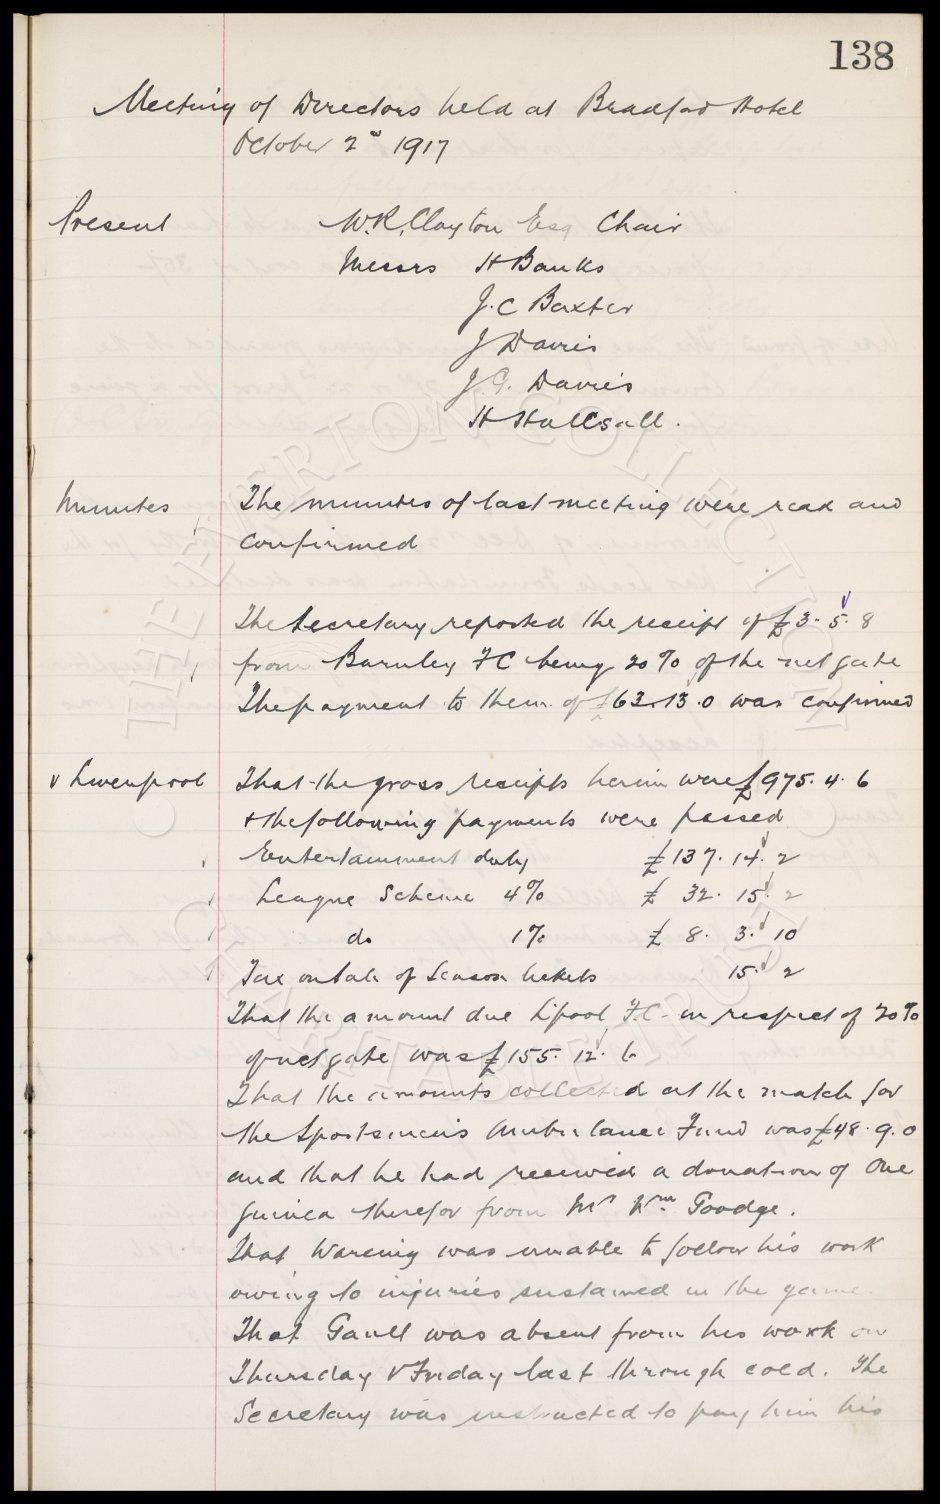 138
Meeting of Directors held at Bradford Hotel
October 2nd 1917
Present W.R. Clayton Esq Chair
Messrs H Banks
J.C Baxter
J Davies
J.G. Davies
H Hallsall.
Minutes The minutes of last meeting were read and
confirmed
The Secretary reported the receipt of £3.5.8
from Burnley FC being 20% of the net gate
The payment to them of £63.13.0 was confirmed
v Liverpool That the gross receipts herein were £975.4.6
& the following payments were passed
Entertainment duty £137.14.2
League Scheme 4% £32.15.2
do 1% £8.3.10
Tax on Sale of Season tickets 15.2
That the amount due L'pool F.C. in respect of 20%
of net gate was £155.12.6
That the amounts collected at the match for
the Sportsmen's Ambulance Fund was £48.9.0
and that he had received a donation of One
guinea therefor from Mr Wm Goodge.
That Wareing was unable to follow his work
owing to injuries sustained in the game.
That Gault was absent from his work on
Thursday & Friday last through cold. The
Secretary was instructed to pay him his
THE EVERTON COLLECTION
CHARITABLE TRUST